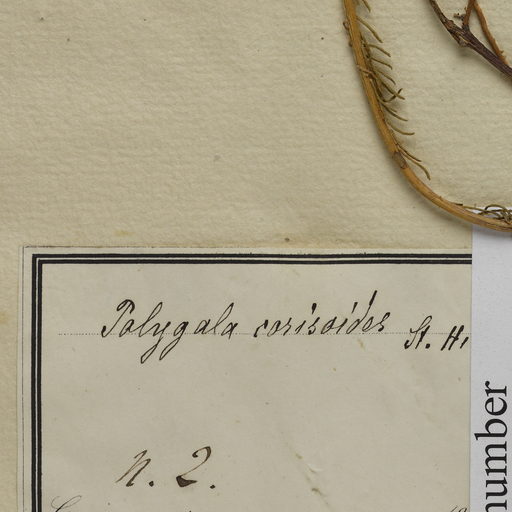 Polygala corisoides St. Hi
n. 2.
number